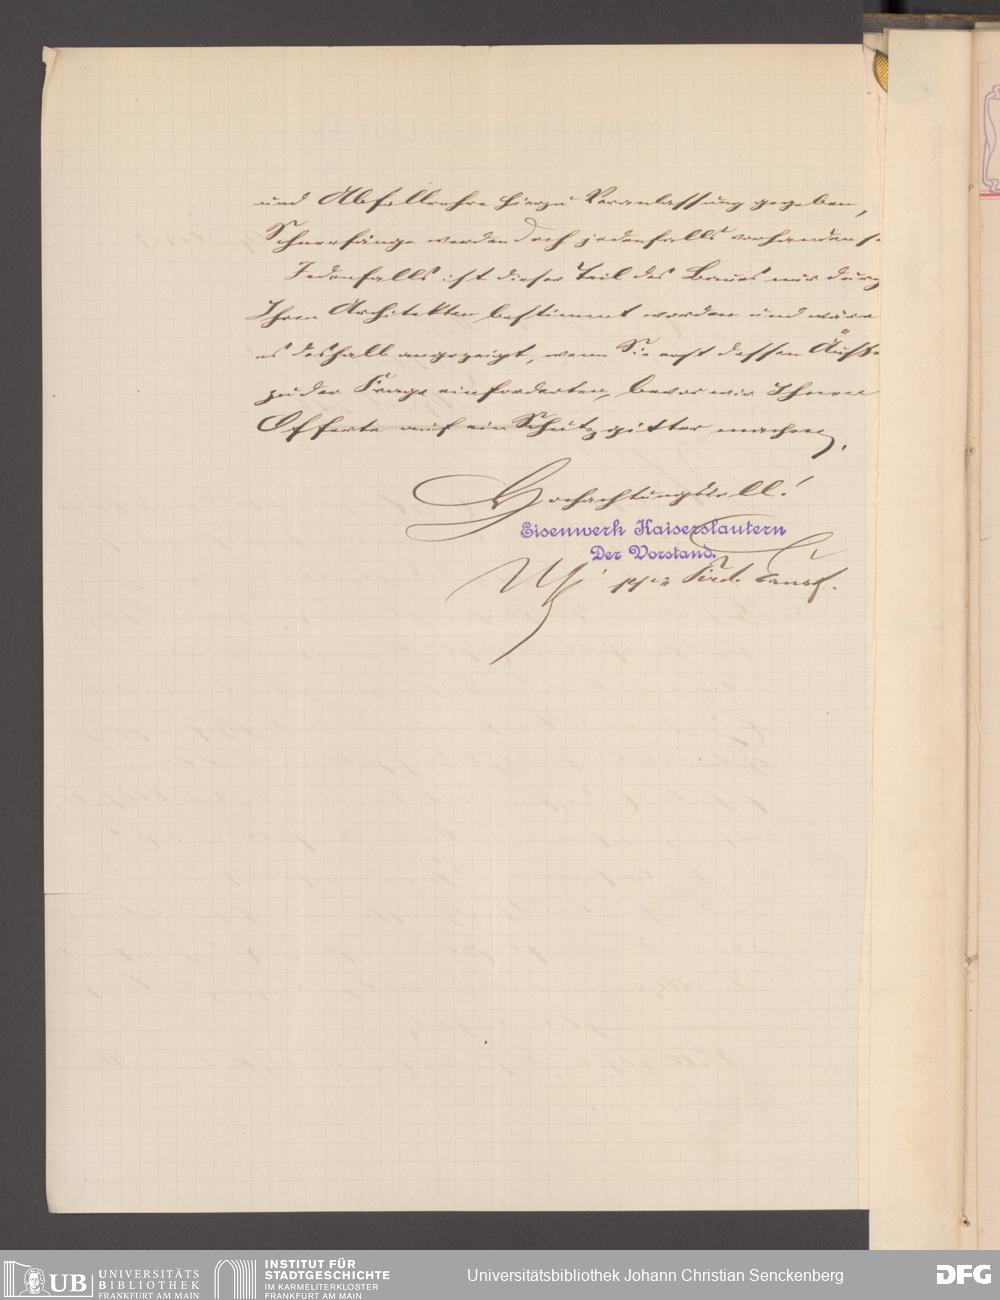 und Abfallrohre hierzu Veranlassung gegeben,
Schneefänge werden doch jedenfalls vorhanden s
Jedenfalls ist dieser Teil des Baues nur durch
Ihren Architekten bestimmt worden und wäre
es deshalb angezeigt, wenn Sie erst dessen Äusse
zu der Frage einforderten, bevor wir Ihnen
Offerte auf ein Schutzgitter machen.
Hochachtungsvoll!
Eisenwerk Kaiserslautern
Der Vorstand.
ppa
UB UNIVERSITÄTS BIBLIOTHEK FRANKFURT AM MAIN
INSTITUT FÜR STADTGESCHICHTE IM KARMELITERKLOSTER FRANKFURT AM MAIN
Universitätsbibliothek Johann Christian Senckenberg
DFG